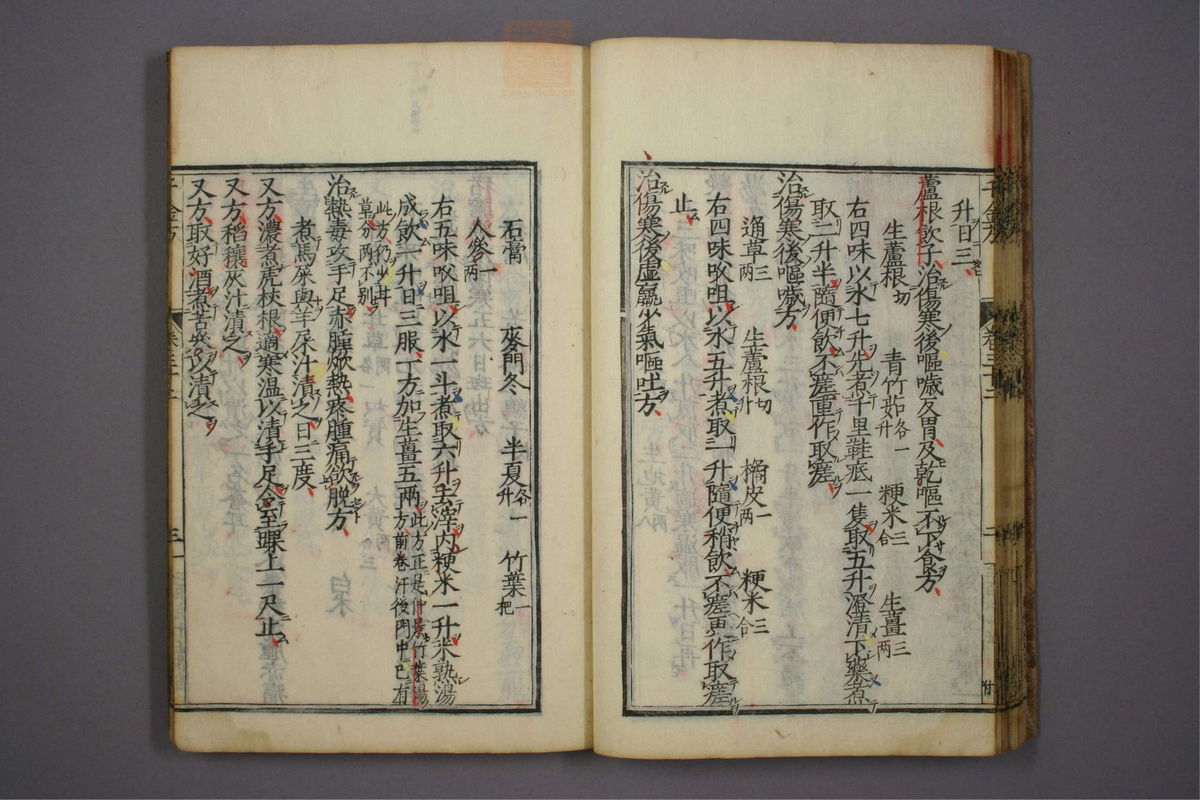 升日三
蘆根飲子治傷寒後嘔噦反胃及乾嘔不下食方
生蘆根切 青竹茹各一升 粳米三合 生薑三两
右四味以水七升先煮千里鞋底一隻取五升澄清下藥煮
取二升半隨便飲不瘥重作取瘥
治傷寒後嘔噦方
通草三两 生蘆根切升 橘皮一两 粳米三合
右四味㕮咀以水五升煮取二升隨便稍飲不瘥更作取瘥
止
治傷寒後虚羸少氣嘔吐方
石膏 麥門冬 半夏各一升 竹葉一把
人參一两
右五味㕮咀以水一斗煮取六升去滓内粳米一升米熟湯
成飲一升日三服一方加生薑五两此方正是仲景竹葉湯方前卷汗後門中已有
此方仍少甘草分两不别
治熱毒攻手足赤腫焮熱疼腫痛欲脱方
煮馬屎與羊屎汁漬之日三度
又方濃煮虎杖根適寒温以漬手足令至踝上一尺止
又方稻穰灰汁漬之
又方取好酒煮苦參以漬之
千金方
卷三十二